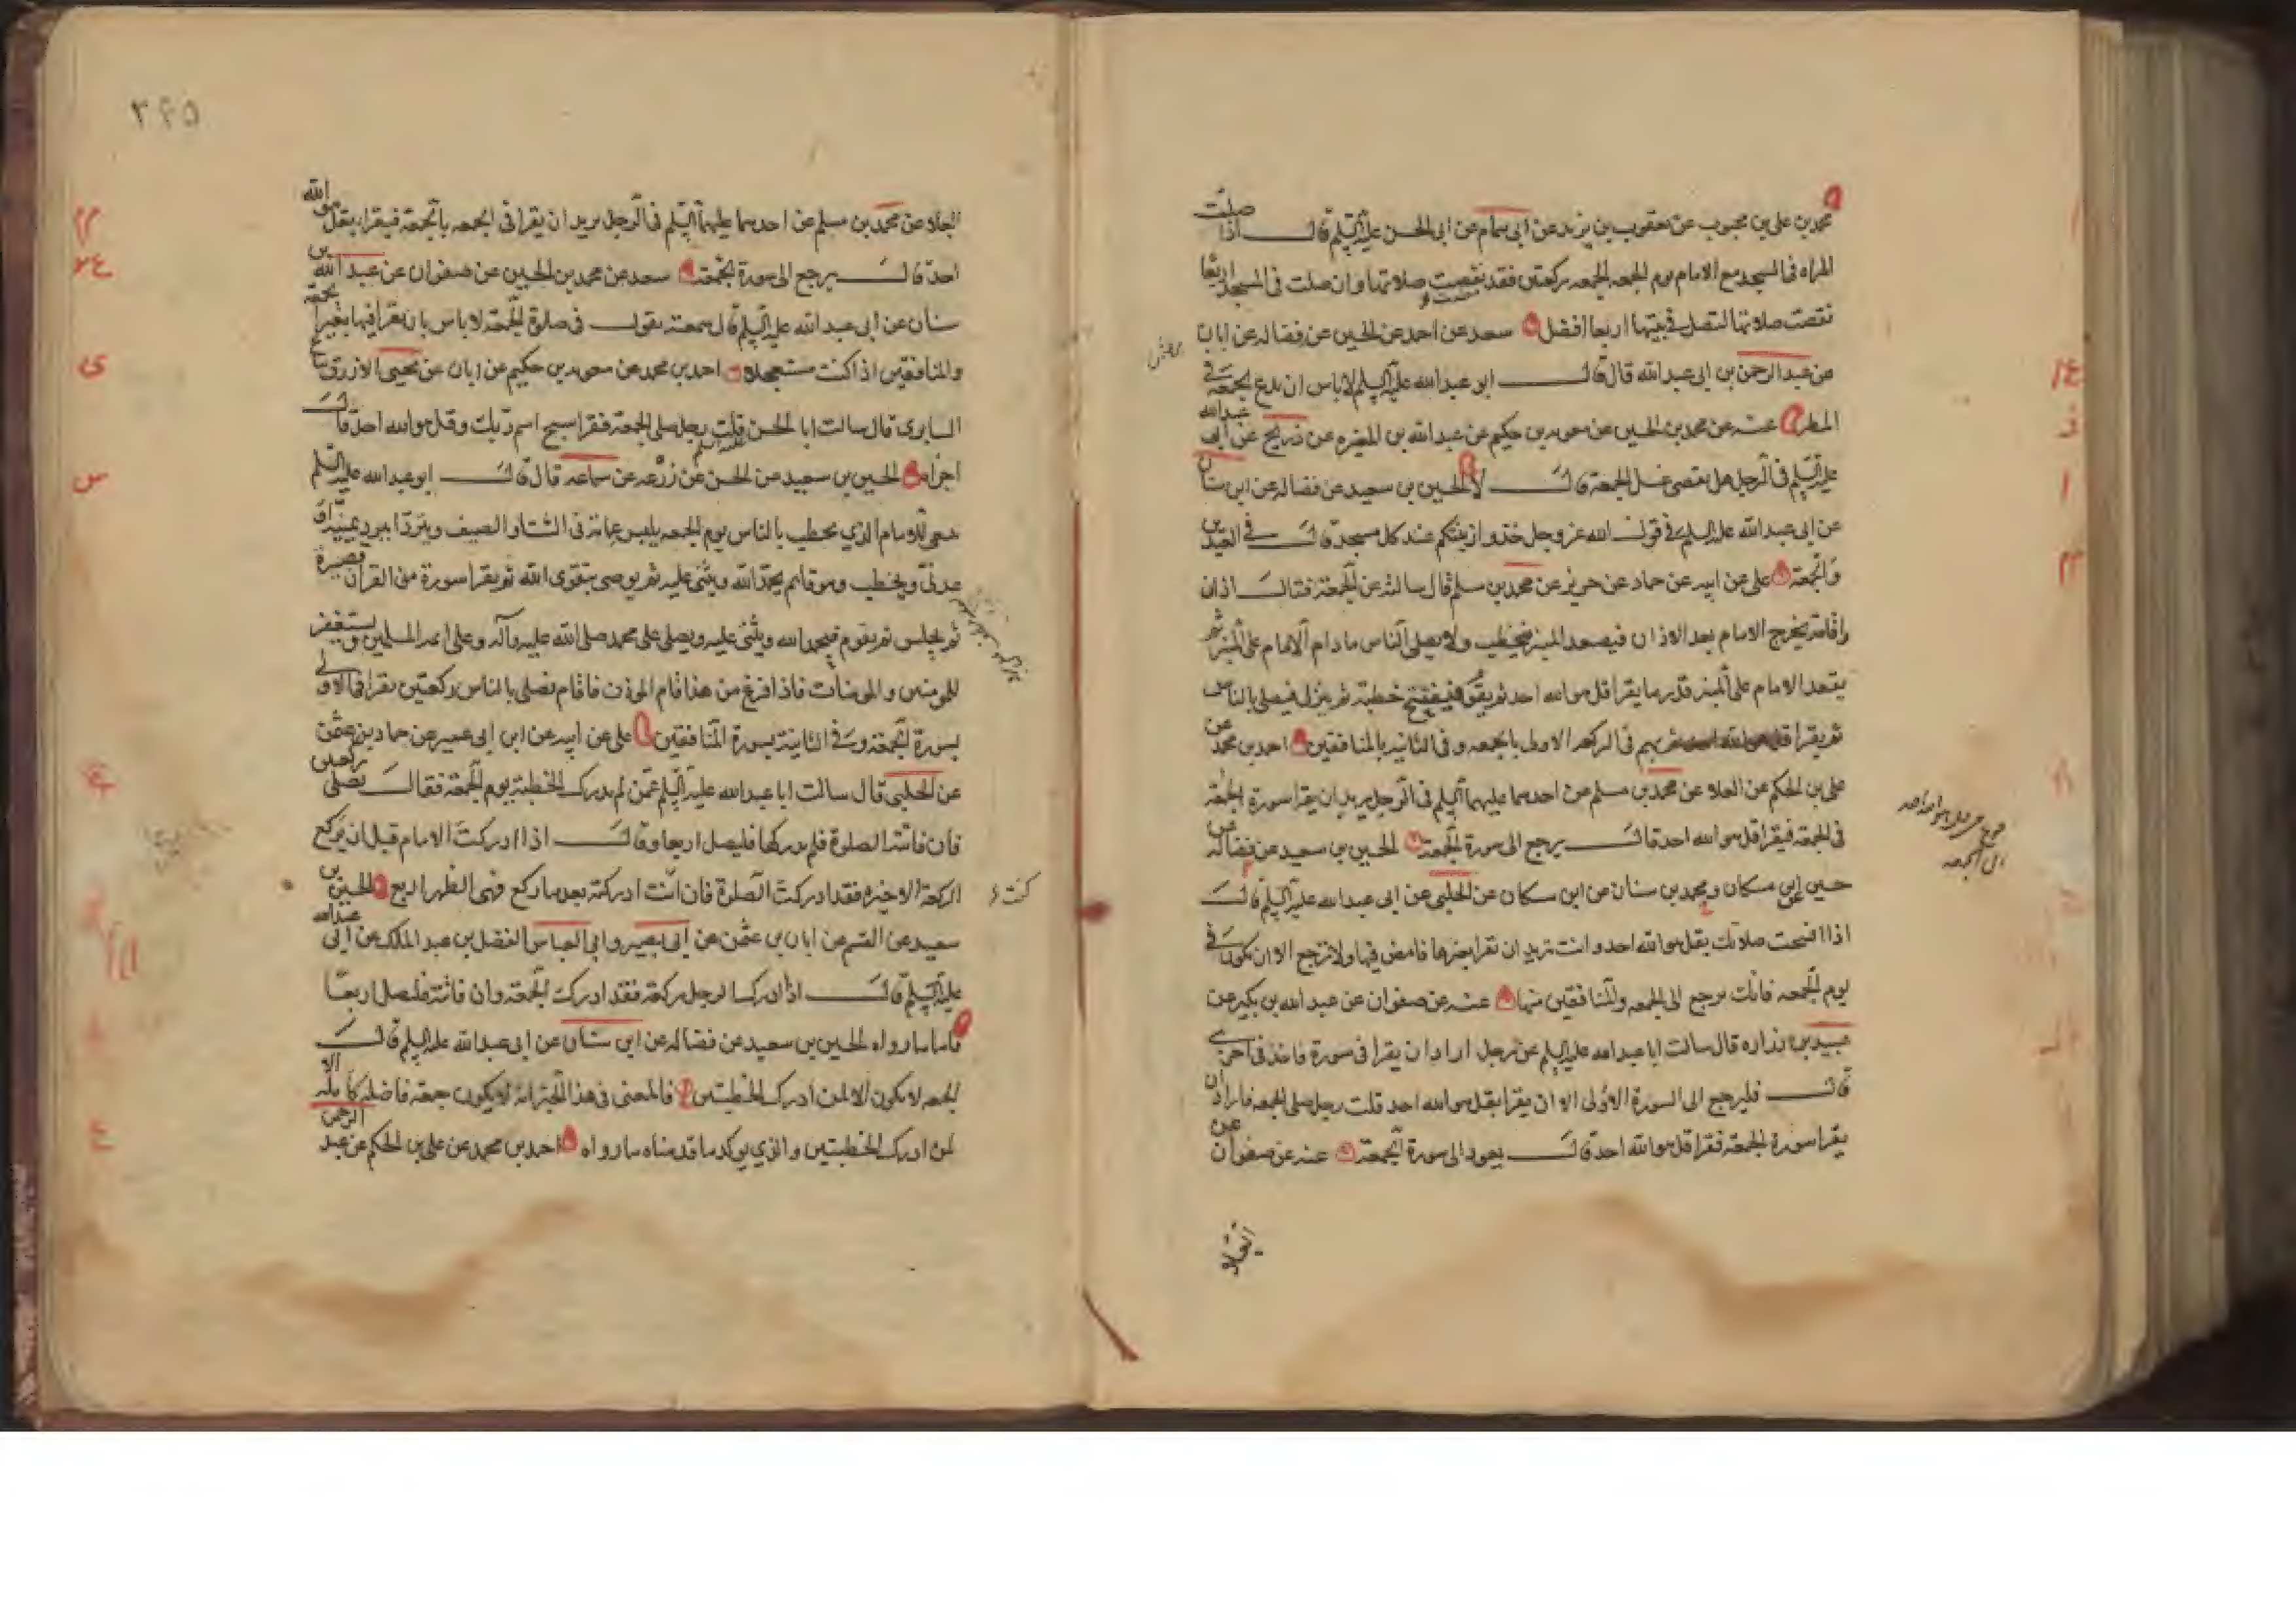 محمد بن علي بن محبوب عن يعقوب بن يزيد عن ابي همام عن ابي الحسن عليه السلم قال اذا صلت
المراه في المسجد مع الامام يوم الجمعه الجمعه ركعتين فقد نقصت صلاتها وان صلت في المسجد اربعا
نقصت صلاتها لتصل في بيتها اربعا افضل سعد عن احمد عن الحسين عن فضاله عن ابان
عن عبد الرحمن بن ابي عبد الله قال قال ابو عبد الله عليه السلم لا باس ان تدع الجمعة في
المطر عنه عن محمد بن الحسين عن معويه بن حكيم عن عبد الله بن المغيره عن ذريح عن ابي عبد الله
عليه السلم في الرجل هل يقضي غسل الجمعة قال لا الحسين بن سعيد عن فضاله عن ابن سنان
عن ابي عبد الله عليه السلم في قول الله عز وجل خذوا زينتكم عند كل مسجد قال في العيدين
والجمعة علي عن ابيه عن حماد عن حريز عن محمد بن مسلم قال سالته عن الجمعة فقال اذان
واقامة يخرج الامام بعد الاذان فيصعد المنبر فيخطب ولا يصلي الناس ما دام الامام على المنبر ثم
يقعد الامام على المنبر قدر ما يقرا قل هو الله احد ثم يقوم فيفتتح خطبته ثم ينزل فيصلي بالناس
ثم يقرا بهم في الركعه الاولى بالجمعه وفي الثانيه بالمنافقين احمد بن محمد عن
علي بن الحكم عن العلا عن محمد بن مسلم عن احدهما عليهما السلم في الرجل يريد ان يقرا سورة الجمعة
في الجمعة فيقرا قل هو الله احد قال يرجع الى سورة الجمعة الحسين بن سعيد عن فضاله عن
حسين عن ابن مسكان ومحمد بن سنان عن ابن مسكان عن الحلبي عن ابي عبد الله عليه السلم قال
اذا افتتحت صلاتك بقل هو الله احد وانت تريد ان تقرا بغيرها فامض فيها ولا ترجع الا ان تكون في
يوم الجمعه فانك ترجع الى الجمعه والمنافقين منها عنه عن صفوان عن عبد الله بن بكير عن
عبيد بن زراره قال سالت ابا عبد الله عليه السلم عن رجل اراد ان يقرا في سورة فاخذ في اخرى
قال فليرجع الى السورة الاولى الا ان يقرا بقل هو الله احد قلت رجل صلى الجمعه فاراد ان
يقرا سورة الجمعة فقرا قل هو الله احد قال يعود الى سورة الجمعة عنه عن صفوان عن
العلاء
٣٤٥
العلاء عن محمد بن مسلم عن احدهما عليهما السلم في الرجل يريد ان يقرا في الجمعه بالجمعة فيقرا بقل هو الله
احد قال يرجع الى سورة الجمعة سعد عن محمد بن الحسين عن صفوان عن عبد الله بن
سنان عن ابي عبد الله عليه السلم قال سمعته يقول في صلوة الجمعة لا باس بان يقرا فيها بغير الجمعة
والمنافقين اذا كنت مستعجلا احمد بن محمد عن معويه بن حكيم عن ابان عن يحيى الازرق بياع
السابري قال سالت ابا الحسن عليه السلم قلت رجل صلى الجمعة فقرا سبح اسم ربك وقل هو الله احد قال
اجزاه الحسين بن سعيد عن الحسن عن زرعه عن سماعه قال قال ابو عبد الله عليه السلم
ينبغي للامام الذي يخطب بالناس يوم الجمعه يلبس عمامة في الشتاء والصيف ويتردا ببرد يمنية او
عدني ويخطب وهو قائم يحمد الله ويثني عليه ثم يوصي بتقوى الله ثم يقرا سورة من القرآن قصيرة
ثم يجلس ثم يقوم فيحمد الله ويثني عليه ويصلي على محمد صلى الله عليه وآله وعلى ائمه المسلمين ويستغفر
للمومنين والمومنات فاذا فرغ من هذا قام الموذن فاقام فصلى بالناس ركعتين يقرا في الاولى
بسورة الجمعة وفي الثانية بسورة المنافقين علي عن ابيه عن ابن ابي عمير عن حماد بن عثمن
عن الحلبي قال سالت ابا عبد الله عليه السلم عمن لم يدرك الخطبة يوم الجمعة فقال يصلي ركعتين
فان فاتته الصلوة فلم يدركها فليصل اربعا وقال اذا ادركت الامام قبل ان يركع
الركعة الاخيره فقد ادركت الصلوة فان انت ادركته بعد ما ركع فهي الظهر اربع الحسين بن
كنت
سعيد عن القسم عن ابان بن عثمن عن ابي بصير وابي العباس الفضل بن عبد الملك عن ابي عبد الله
عليه السلم قال اذا ادرك الرجل ركعة فقد ادركت الجمعة وان فاتته فليصل اربعا
فاما ما رواه الحسين بن سعيد عن فضاله عن ابن سنان عن ابي عبد الله عليه السلم قال
الجمعه لا تكون الا لمن ادرك الخطبتين فالمعنى في هذا الخبر انه لا يكون جمعة فاضله كامله الا
لمن ادرك الخطبتين والذي يوكد ما قدمناه ما رواه احمد بن محمد عن علي بن الحكم عن عبد الرحمن